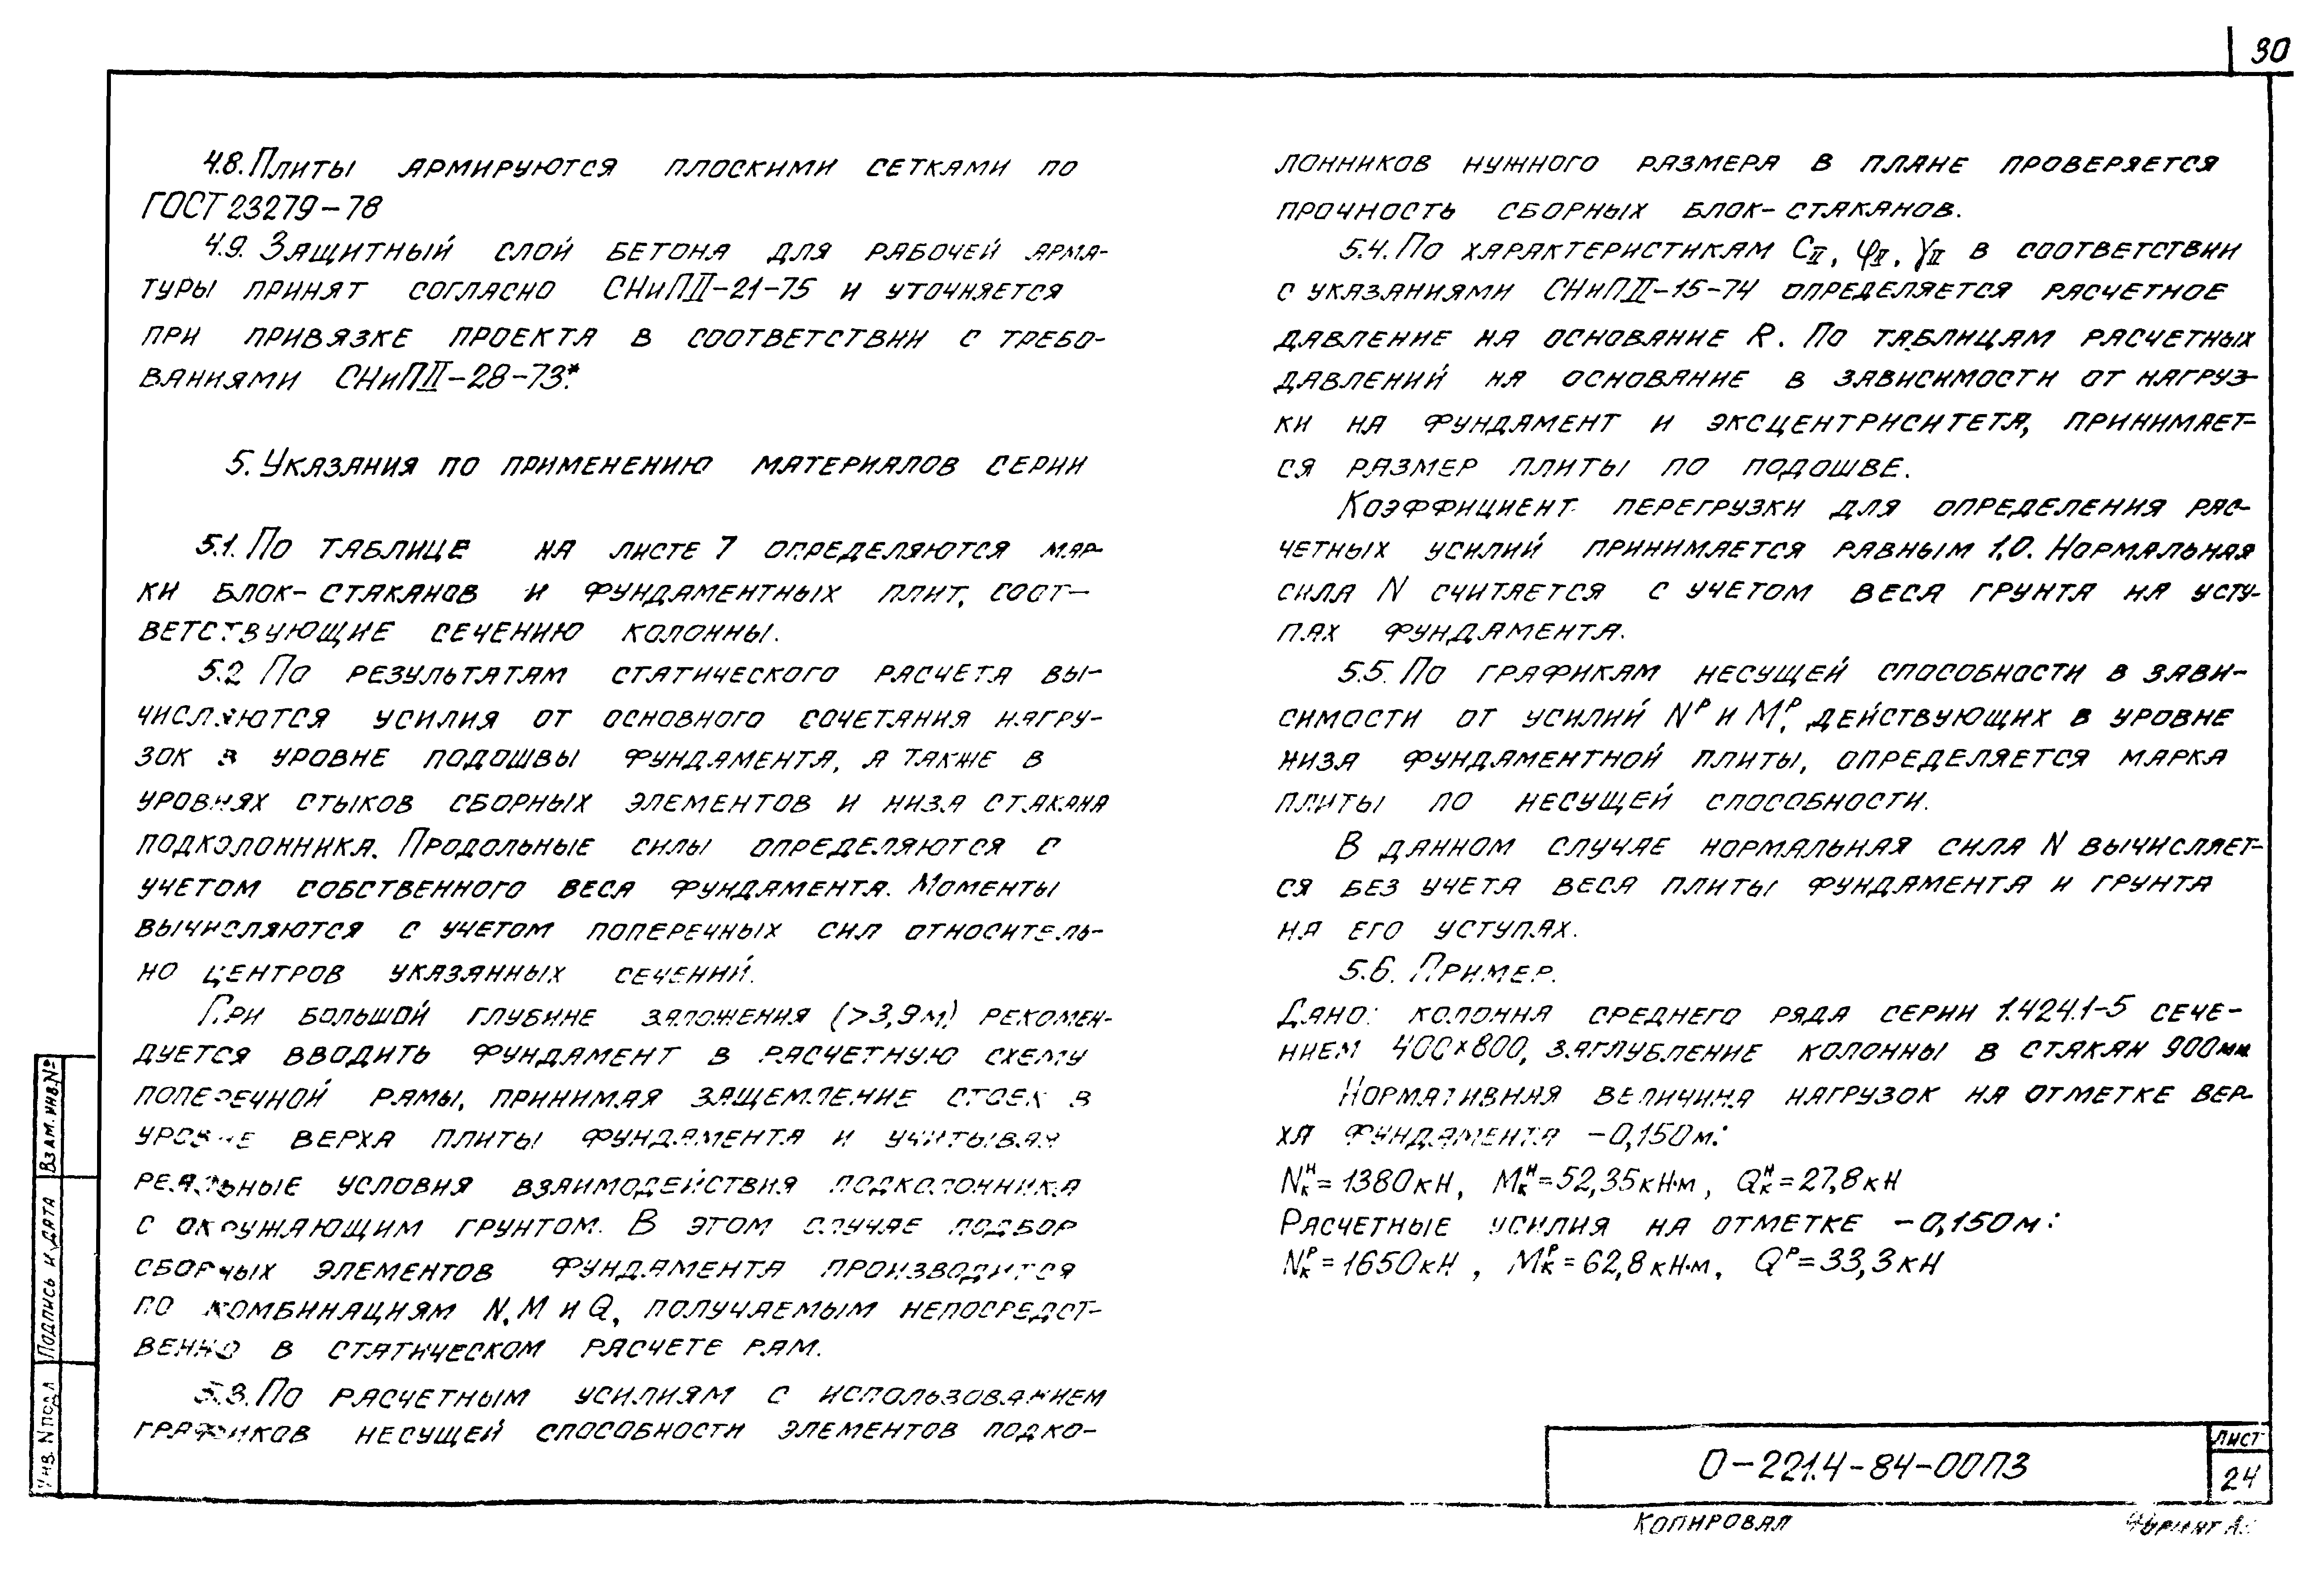 30
4.8. Плиты армируются плоскими сетками по
ГОСТ 23279-78
4.9. Защитный слой бетона для рабочей арма-
туры принят согласно СНиП II-21-75 и уточняется
при привязке проекта в соответствии с требо-
ваниями СНиП II-28-73*.
5. Указания по применению материалов серии
5.1. По таблице на листе 7 определяются мар-
ки блок-стаканов и фундаментных плит, соот-
ветствующие сечению колонны.
5.2 По результатам статического расчета вы-
числяются усилия от основного сочетания нагру-
зок в уровне подошвы фундамента, а также в
уровнях стыков сборных элементов и низа стакана
подколонника. Продольные силы определяются с
учетом собственного веса фундамента. Моменты
вычисляются с учетом поперечных сил относитель-
но центров указанных сечений.
При большой глубине заложения (>3,9м) рекомен-
дуется вводить фундамент в расчетную схему
поперечной рамы, принимая защемление стоек в
уровне верха плиты фундамента и учитывая
реальные условия взаимодействия подколонника
с окружающим грунтом. В этом случае подбор
сборных элементов фундамента производится
по комбинациям N, M и Q, получаемым непосредст-
венно в статическом расчете рам.
5.3. По расчетным усилиям с использованием
графиков несущей способности элементов подко-
лонников нужного размера в плане проверяется
прочность сборных блок-стаканов.
5.4. По характеристикам CII, φII, γII в соответствии
с указаниями СНиП II-15-74 определяется расчетное
давление на основание R. По таблицам расчетных
давлений на основание в зависимости от нагруз-
ки на фундамент и эксцентриситета, принимает-
ся размер плиты по подошве.
Коэффициент перегрузки для определения рас-
четных усилий принимается равным 1,0. Нормальная
сила N считается с учетом веса грунта на усту-
пах фундамента.
5.5. По графикам несущей способности в зави-
симости от усилий Nᵖ и Mᵖ, действующих в уровне
низа фундаментной плиты, определяется марка
плиты по несущей способности.
В данном случае нормальная сила N вычисляет-
ся без учета веса плиты фундамента и грунта
на его уступах.
5.6. Пример.
Дано: колонна среднего ряда серии 1.424.1-5 сече-
нием 400×800, заглубление колонны в стакан 900мм.
Нормативная величина нагрузок на отметке вер-
ха фундамента -0,150м:
Nкᴴ=1380кН, Mкᴴ=52,35кН·м, Qкᴴ=27,8кН
Расчетные усилия на отметке -0,150м:
Nкᵖ=1650кН, Mкᵖ=62,8кН·м, Qᵖ=33,3кН
Взам. инв. №
Подпись и дата
Инв. № подл
0-221.4-84-00ПЗ
Лист
24
Копировал
Формат